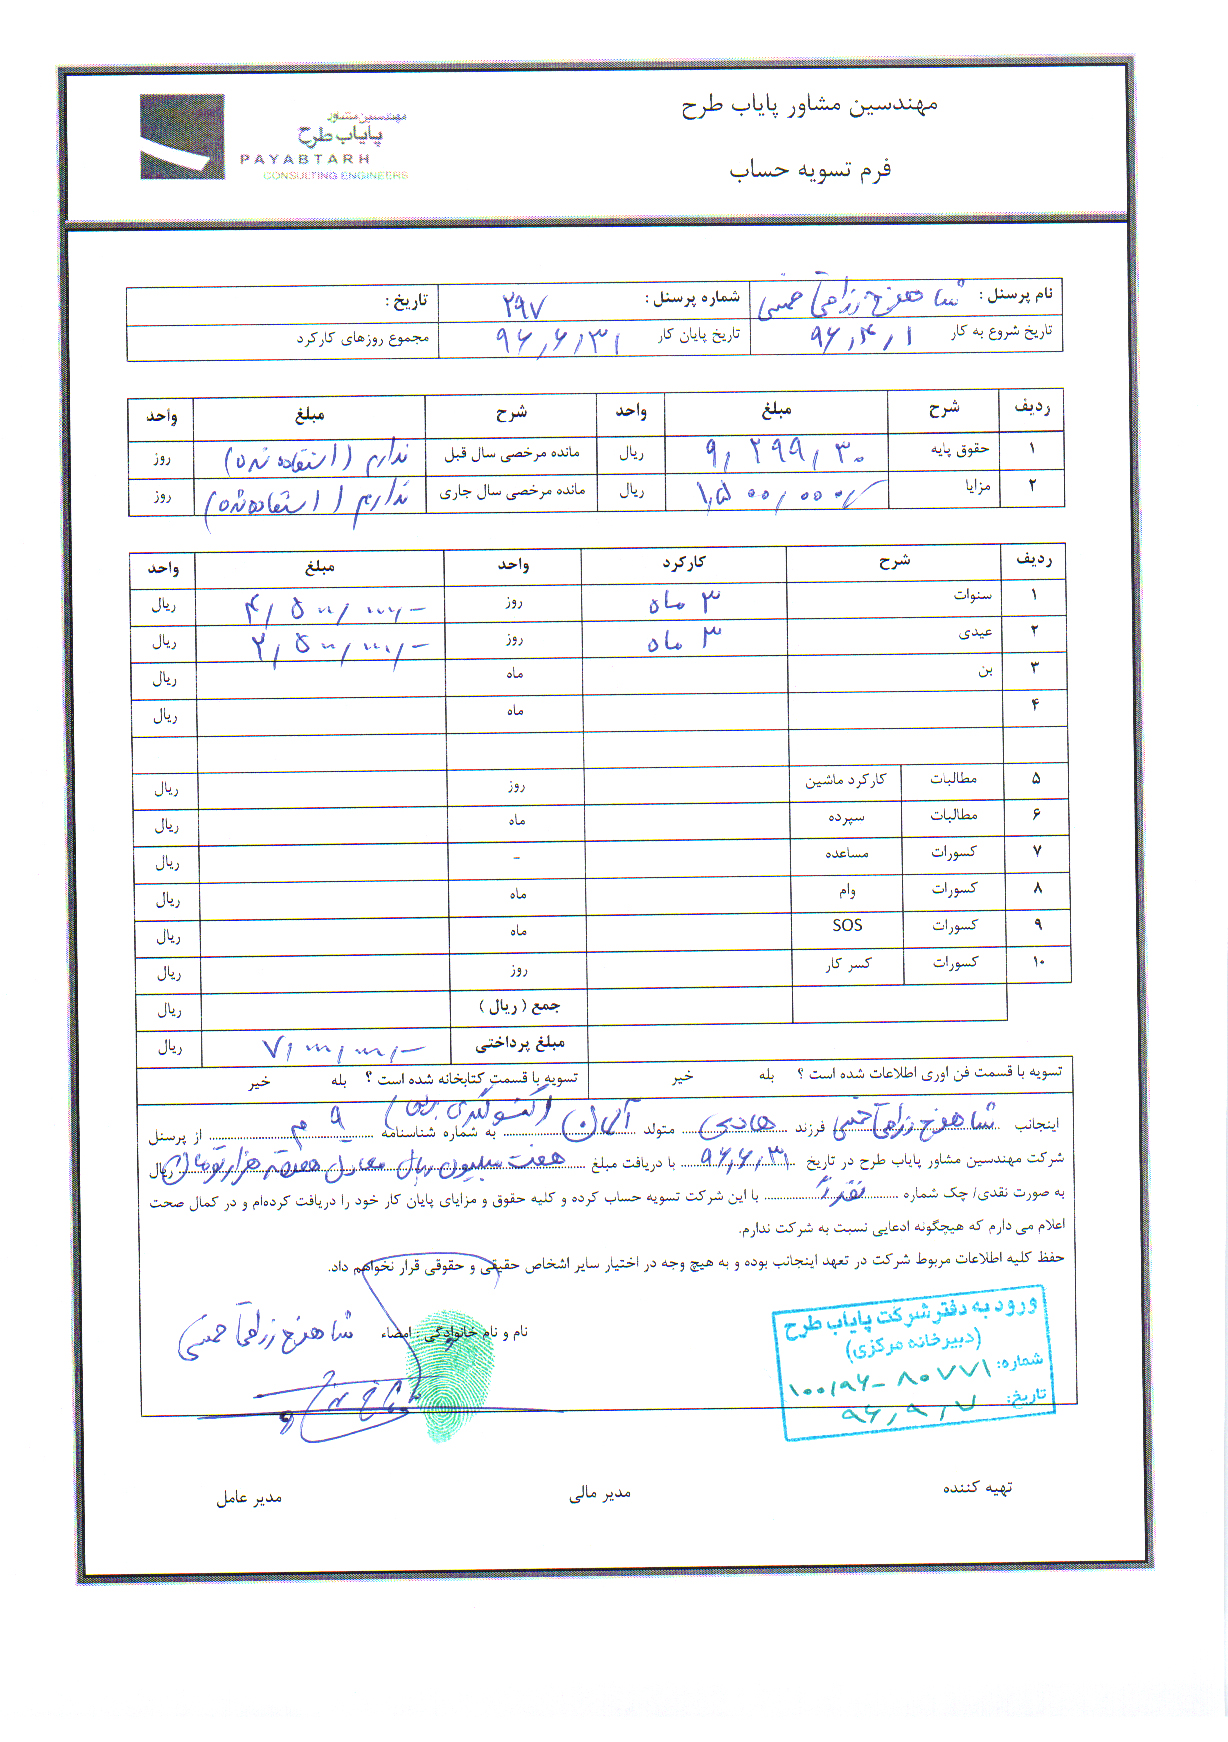 مهندسین مشاور پایاب طرح
مهندسین مشاور
پایاب طرح
PAYABTARH
CONSULTING ENGINEERS
فرم تسویه حساب
نام پرسنل : شاهرخ شماره پرسنل : ۲۹۷ تاریخ :
تاریخ شروع به کار ۹۶,۴,۱ تاریخ پایان کار ۹۶,۶,۳۱ مجموع روزهای کارکرد
ردیف شرح مبلغ واحد شرح مبلغ واحد
۱ حقوق پایه ریال مانده مرخصی سال قبل ندارم (استفاده شده) روز
۲ مزایا ۱,۵۰۰,۰۰۰ ریال مانده مرخصی سال جاری ندارم (استفاده شده) روز
ردیف شرح کارکرد واحد مبلغ واحد
۱ سنوات ۳ ماه روز ۴,۵۰۰,۰۰۰,- ریال
۲ عیدی ۳ ماه روز ۲,۵۰۰,۰۰۰,- ریال
۳ بن ماه ریال
۴ ماه ریال
۵ مطالبات کارکرد ماشین روز ریال
۶ مطالبات سپرده ماه ریال
۷ کسورات مساعده - ریال
۸ کسورات وام ماه ریال
۹ کسورات SOS ماه ریال
۱۰ کسورات کسر کار روز ریال
جمع ( ریال ) ریال
مبلغ پرداختی ۷,۰۰۰,۰۰۰,- ریال
تسویه با قسمت فن اوری اطلاعات شده است ؟ بله خیر تسویه با قسمت کتابخانه شده است ؟ بله خیر
اینجانب شاهرخ فرزند هادی متولد به شماره شناسنامه ۹ از پرسنل
شرکت مهندسین مشاور پایاب طرح در تاریخ ۹۶,۶,۳۱ با دریافت مبلغ هفت میلیون ریال معادل هفتصد هزار تومان ریال
به صورت نقدی/ چک شماره نقداً با این شرکت تسویه حساب کرده و کلیه حقوق و مزایای پایان کار خود را دریافت کرده‌ام و در کمال صحت
اعلام می دارم که هیچگونه ادعایی نسبت به شرکت ندارم.
حفظ کلیه اطلاعات مربوط شرکت در تعهد اینجانب بوده و به هیچ وجه در اختیار سایر اشخاص حقیقی و حقوقی قرار نخواهم داد.
نام و نام خانوادگی . امضاء شاهرخ
ورود به دفتر شرکت پایاب طرح
(دبیرخانه مرکزی)
شماره: ۱۰۰/۹۶-۸۰۷۷۱
تاریخ: ۹۶,۹,۷
تهیه کننده مدیر مالی مدیر عامل